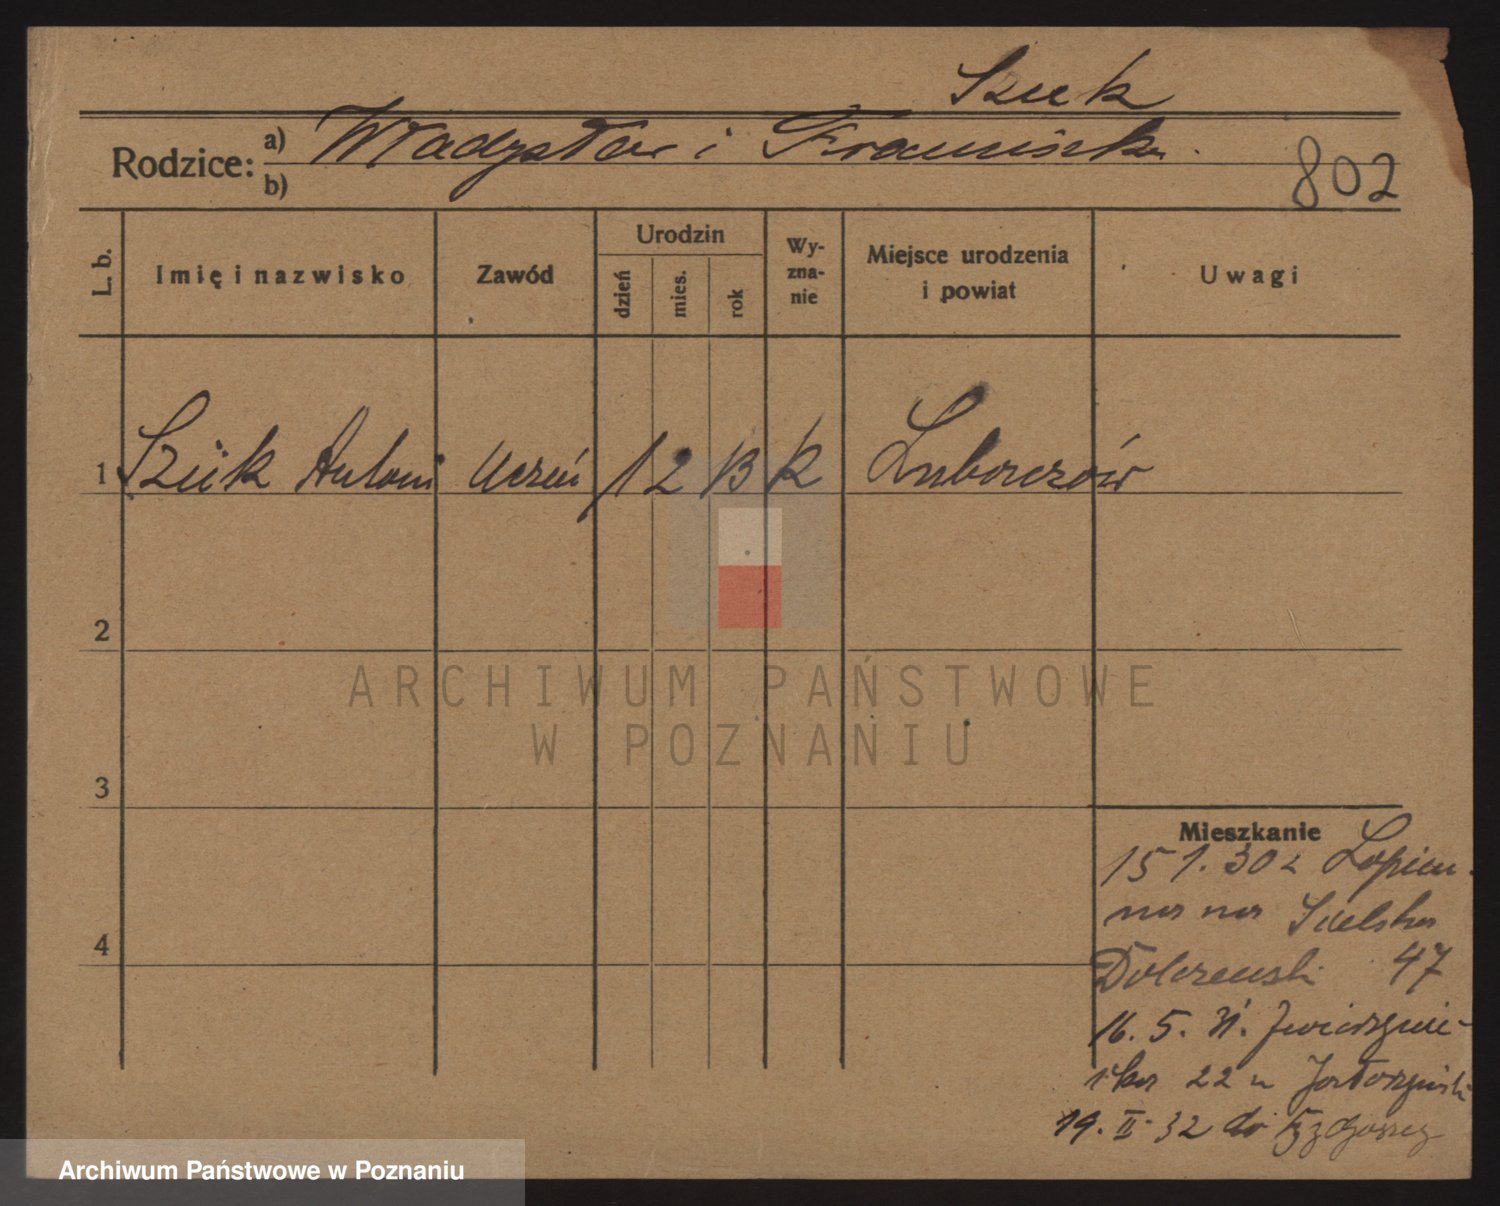 Szuk
Rodzice: a) Władysław i Franciszka
b)
802
L. b. Imię i nazwisko Zawód Urodzin dzień mies. rok Wy-zna-nie Miejsce urodzenia i powiat Uwagi
1 Szük Antoni Uczeń 1 2 13 k
2
ARCHIWUM PAŃSTWOWE
W POZNANIU
3
Mieszkanie
15 1. 30 z Łopien-
na na
4
47
16. 5. 31.
22
19. II. 32 do Bydgoszczy
Archiwum Państwowe w Poznaniu